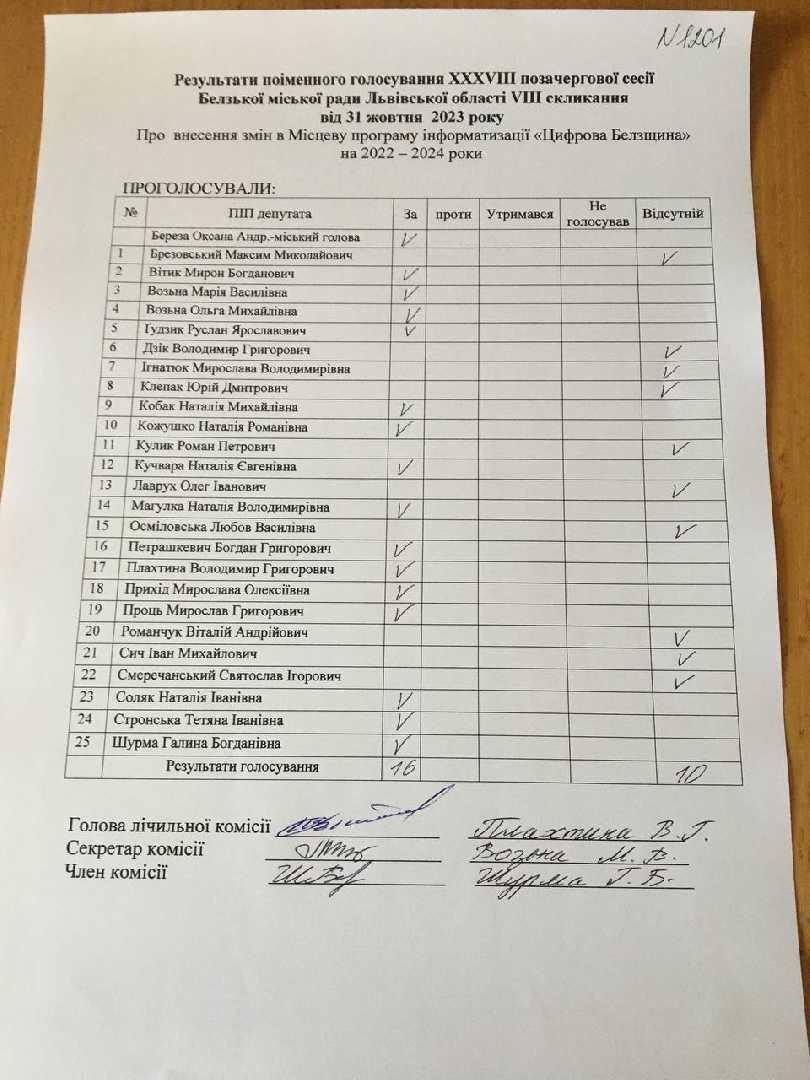 N 1201
Результати поіменного голосування XXXVIII позачергової сесії
Белзької міської ради Львівської області VIII скликання
від 31 жовтня 2023 року
Про внесення змін в Місцеву програму інформатизації «Цифрова Белзщина»
на 2022 – 2024 роки
ПРОГОЛОСУВАЛИ:
№ ПІП депутата За проти Утримався Не голосував Відсутній
Береза Оксана Андр.-міський голова V
1 Брезовський Максим Миколайович V
2 Вітик Мирон Богданович V
3 Возьна Марія Василівна V
4 Возьна Ольга Михайлівна V
5 Гудзик Руслан Ярославович V
6 Дзік Володимир Григорович V
7 Ігнатюк Мирослава Володимирівна V
8 Клепак Юрій Дмитрович V
9 Кобак Наталія Михайлівна V
10 Кожушко Наталія Романівна V
11 Кулик Роман Петрович V
12 Кучвара Наталія Євгенівна V
13 Лаврух Олег Іванович V
14 Магулка Наталія Володимирівна V
15 Осміловська Любов Василівна V
16 Петрашкевич Богдан Григорович V
17 Плахтина Володимир Григорович V
18 Прихід Мирослава Олексіївна V
19 Проць Мирослав Григорович V
20 Романчук Віталій Андрійович V
21 Сич Іван Михайлович V
22 Смеречанський Святослав Ігорович V
23 Соляк Наталія Іванівна V
24 Стронська Тетяна Іванівна V
25 Шурма Галина Богданівна V
Результати голосування 16 10
Голова лічильної комісії Плахтина В. Г.
Секретар комісії Возьна М. В.
Член комісії Шурма Г. Б.